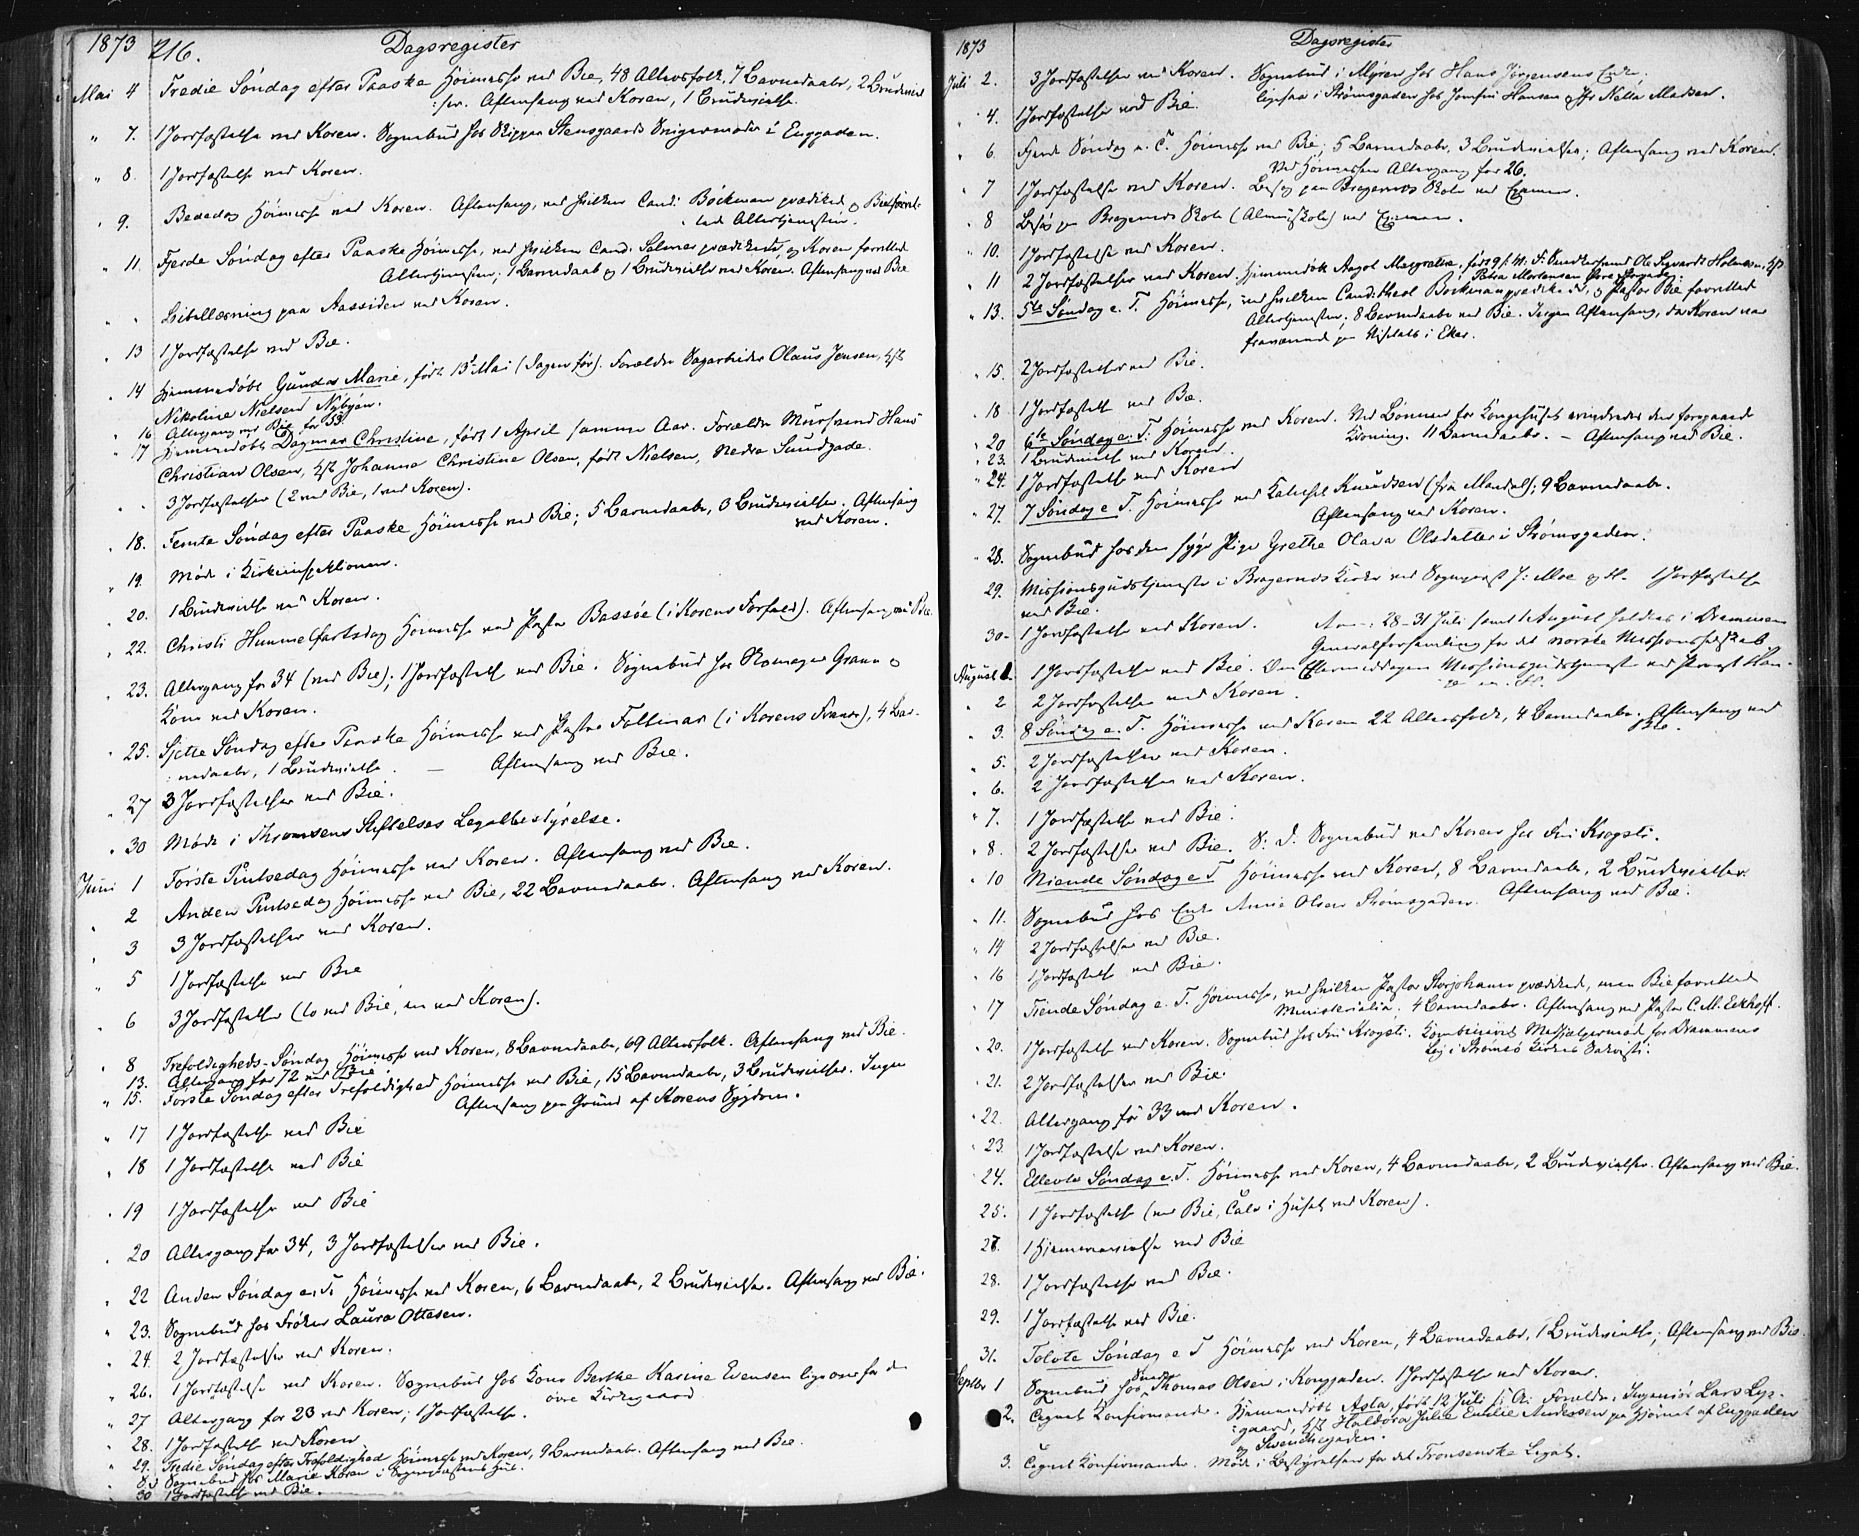 1873 216. Dagsregister
Mai 4 Tredie Søndag efter Paaske Høimesse ved Bie, 48 Altersfolk, 7 Barnedaabe, 2 Brudeviel
:ser. Aftensang ved Koren, 1 Brudevielse.
" 7. 1 Jordfæstelse ved Koren. Sognebud hos Skipper Stensgaards Svigermoder i Enggaden.
" 8. 1 Jordfæstelse ved Koren.
" 9. Bededag Høimesse ved Koren. Aftensang, ved hvilken Cand: Böckman prædikede og Bie forret-
tede Altertjenesten.
" 11. Fjerde Søndag efter Paaske Høimesse, ved hvilken Cand. Salmer prædikede, og Koren forrettede
Altertjenesten; 1 Barnedaab og 1 Brudevielse ved Koren. Aftensang ved Bie
" " Bibellæsning paa Aassiden ved Koren.
" 13 1 Jordfæstelse ved Bie.
" 14 Hjemmedøbt Gunda Marie, født 13de Mai (Dagen før). Forældre Sagarbeider Olaus Jensen, Hst
Nikoline Nielsen Nybyen.
" 16 Altergang ved Bie for 53.
" 17 Hjemmedøbt Dagmar Christine, født 1 April samme Aar. Forældre Muursvend Hans
Christian Olsen, Hst Johanne Christine Olsen, født Nielsen, Nedre Sundgade.
" " 3 Jordfæstelser (2 ved Bie, 1 ved Koren).
" 18. Femte Søndag efter Paaske Høimesse ved Bie; 5 Barnedaabe, 3 Brudevielser. Aftensang
ved Koren.
" 19. Møde i Kirkeinspektionen.
" 20. 1 Brudevielse ved Koren.
" 22. Christi Himmelfartsdag Høimesse ved Pastor Bassøe (i Korens Forfald). Aftensang ved Bie.
" 23. Altergang for 34 (ved Bie); 1 Jordfæstelse ved Bie. Sognebud hos Rebmager Grann og
Kone ved Koren.
" 25. Sjette Søndag efter Paaske Høimesse ved Pastor Follinar (i Korens Fravær), 4 Bar-
:nedaabe, 1 Brudevielse. — Aftensang ved Bie.
" 27 3 Jordfæstelser ved Bie.
" 30 Møde i Thromsens Stiftelses Legatbestyrelse.
Juni 1 Første Pintsedag Høimesse ved Koren. Aftensang ved Bie.
" 2 Anden Pintsedag Høimesse ved Bie, 22 Barnedaabe. Aftensang ved Koren.
" 3 3 Jordfæstelser ved Koren.
" 5 1 Jordfæstelse ved Bie
" 6 3 Jordfæstelser (to ved Bie, en ved Koren).
" 8 Trefoldigheds-Søndag Høimesse ved Koren, 8 Barnedaabe, 69 Altersfolk. Aftensang ved Bie.
" 13. Altergang for 72 ved Bie
" 15. Første Søndag efter Trefoldighed Høimesse ved Bie, 15 Barnedaabe, 3 Brudevielser. Ingen
Aftensang paa Grund af Korens Sygdom.
" 17 1 Jordfæstelse ved Bie
" 18 1 Jordfæstelse ved Bie
" 19 1 Jordfæstelse ved Bie
" 20 Altergang for 34, 3 Jordfæstelser ved Bie.
" 22 Anden Søndag e. T. Høimesse ved Koren, 6 Barnedaabe, 2 Brudevielser. Aftensang ved Bie.
" 23. Sognebud hos Frøken Laura Ottesen.
" 24. 2 Jordfæstelser ved Koren.
" 26. 1 Jordfæstelse ved Koren. Sognebud hos Kone Berthe Karine Evensen ligeovenfor den
øvre Kirkegaard
" 27 Altergang for 23 ved Koren; 1 Jordfæstelse.
" 28. 1 Jordfæstelse ved Koren
" 29. Tredie Søndag efter Trefoldighed Høimesse ved Koren, 9 Barnedaabe. Aftensang ved Bie.
S: D Sognebud hos Marie Koren i Sognepræstens Huus.
" 30 1 Jordfæstelse ved Bie.
1873 Dagsregister
Juli 2. 3 Jordfæstelser ved Koren. Sognebud i Myren hos Hans Jørgensens Enke,
ligesaa i Strømsgaden hos Jomfru Hansen og Fr Nella Madsen.
" 4. 1 Jordfæstelse ved Bie.
" 6. Fjerde Søndag e. T. Høimesse ved Bie; 5 Barnedaabe, 3 Brudevielser; Aftensang ved Koren.
Ved Høimessen Altergang for 26.
" 7 1 Jordfæstelse ved Koren. Besøg paa Bragernes Skole ved Examen.
" 8 Besøg paa Bragernes Skole (Almueskole) ved Examen.
" 10. 1 Jordfæstelse ved Koren.
" 11 2 Jordfæstelser ved Koren. Hjemmedøbt Aagot Margrethe, født 9 f. M. F: Snedkersvend Ole Sigvard Holmsen, Hst
Petra Mortensen Øvre Storgade.
" 13. 5te Søndag e. T. Høimesse, ved hvilken Cand. theol Bockman prædikede, og Pastor Bie forrettede
Altertjenesten; 8 Barnedaabe ved Bie. Ingen Aftensang, da Koren var
fraværende paa Visitats i Eker.
" 15. 2 Jordfæstelser ved Bie.
" 18. 1 Jordfæstelse ved Bie.
" 20 6te Søndag e. T. Høimesse ved Koren. Ved Bønnen for Kongehuset erindredes den foregaaende
Kroning. 11 Barnedaabe. — Aftensang ved Bie.
" 23. 1 Brudevielse ved Koren.
" 24. 1 Jordfæstelse ved Koren
" 27. 7 Søndag e T. Høimesse ved Kateket Knudsen (fra Mandal); 9 Barnedaabe.
Aftensang ved Koren.
" 28. Sognebud hos den syge Pige Grethe Olava Olsdatter i Strømsgaden.
29. Missionsgudstjeneste i Bragernes Kirke ved Sognepræst J: Moe og H. 1 Jordfæstelse
ved Bie.
30 1 Jordfæstelse ved Koren. Anm: 28-31 Juli samt 1 August holdtes i Drammen
Generalforsamling for det norske Missionsselskab
August 1. 1 Jordfæstelse ved Bie. Om Eftermiddagen Missionsgudstjeneste ved Provst
" 2 2 Jordfæstelser ved Koren.
" 3. 8 Søndag e. T. Høimesse ved Koren 22 Altersfolk, 4 Barnedaabe. Aftensang ved
Bie.
" 5. 2 Jordfæstelser ved Koren.
" 6. 2 Jordfæstelser ved Koren.
" 7. 1 Jordfæstelse ved Bie.
" 8. 2 Jordfæstelser ved Bie. S: D. Sognebud ved Koren hos Fru Krogsti.
" 10 Niende Søndag e T Høimesse ved Koren, 8 Barnedaabe, 2 Brudevielser.
Aftensang ved Bie.
" 11. Sognebud hos Enke Anne Olsen Strømsgaden.
" 14 2 Jordfæstelser ved Bie.
" 16 1 Jordfæstelse ved Bie.
" 17 Tiende Søndag e. T. Høimesse, ved hvilken Pastor Storjohann prædikede, men Bie forrettede
Ministerialia; 4 Barnedaabe. Aftensang ved Pastor C. M. Eckhoff.
" 20. 1 Jordfæstelse ved Koren. Sognebud hos Fru Krogsti. Kombineret Medhjelpermøde for Drammens
By i Strømsø Kirkes Sakristi.
" 21. 2 Jordfæstelser ved Bie.
" 22. Altergang for 33 ved Koren.
" 23. 1 Jordfæstelse ved Koren.
" 24. Ellevte Søndag e. T. Høimesse ved Koren, 4 Barnedaabe, 2 Brudevielser. Aftensang ved Bie.
25. 1 Jordfæstelse (ved Bie, Tale i Huset ved Koren).
27. 1 Hjemmevielse ved Bie
28. 1 Jordfæstelse ved Bie.
29. 1 Jordfæstelse ved Bie.
31. Tolvte Søndag e T Høimesse ved Koren, 4 Barnedaabe, 1 Brudevielse; Aftensang ved Bie.
Septbr 1 Sognebud hos Smed Thomas Olsen i Konggaden. 1 Jordfæstelse ved Koren.
2. Tegnet Konfirmander. Hjemmedøbt Asta, født 12 Juli d. A. Forældre: Ingeniør Lars Lys-
:gaard, Hst Haldora Julie Emilie Andersen paa Hjørnet af Enggaden
og Svenskegaden.
3. Tegnet Konfirmander. Møde i Bestyrelsen for det Tronsenske Legat.